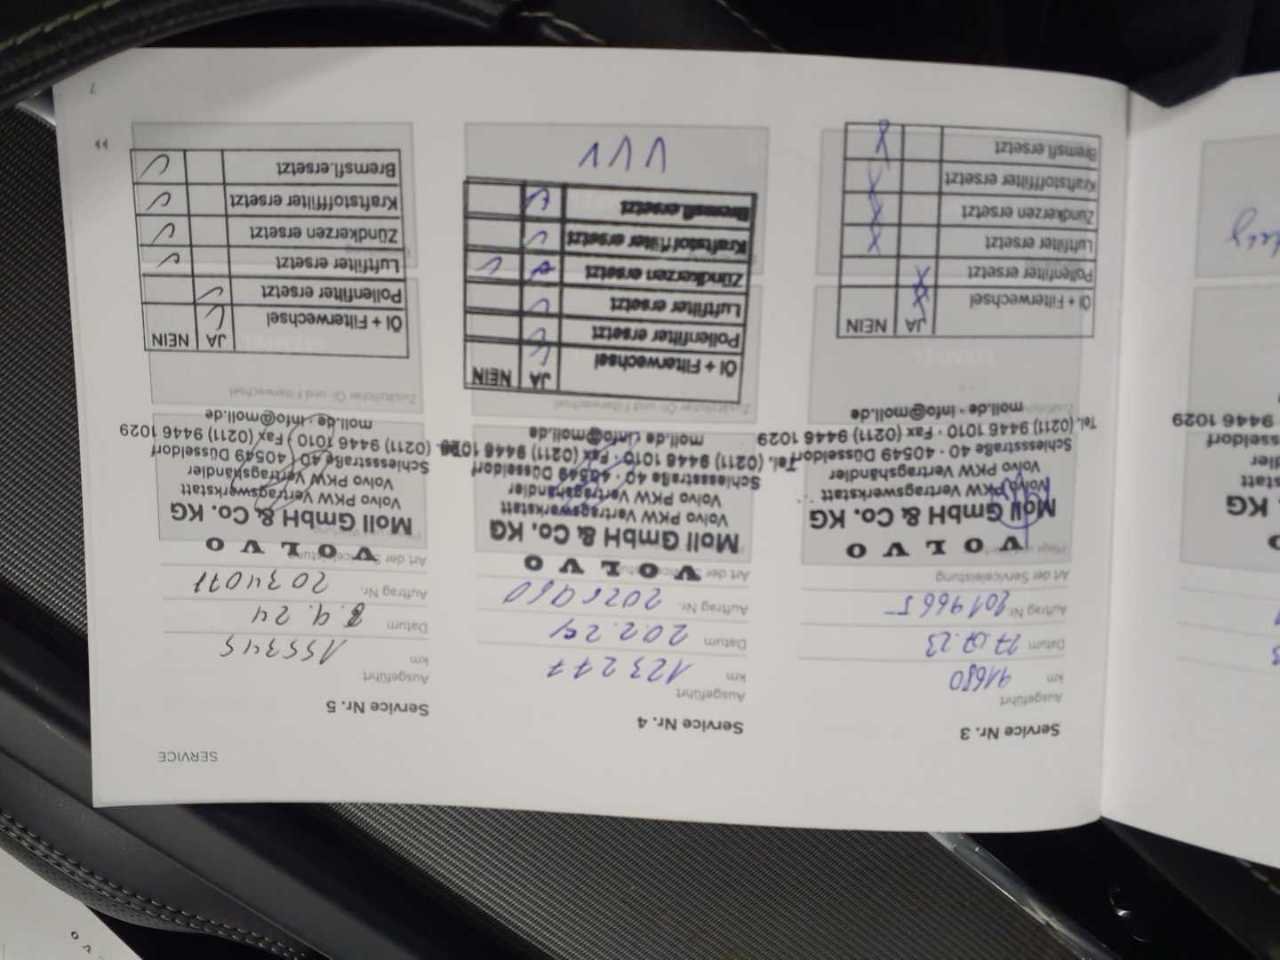 SERVICE
Service Nr. 3
Ausgeführt
km 91680
Datum
Auftrag Nr. 2019665
Art der Serviceleistung
VOLVO
Moll GmbH & Co. KG
Volvo PKW Vertragswerkstatt
Volvo PKW Vertragshändler
Schiessstraße 40 · 40549 Düsseldorf
Tel. (0211) 9446 1010 · Fax (0211) 9446 1029
moll.de · info@moll.de
JA NEIN
Öl + Filterwechsel X
Pollenfilter ersetzt X
Luftfilter ersetzt X
Zündkerzen ersetzt X
Kraftstofffilter ersetzt X
Bremsfl.ersetzt X
Service Nr. 4
Ausgeführt
km 123277
Datum
Auftrag Nr.
Art der
VOLVO
Moll GmbH & Co. KG
Volvo PKW Vertragswerkstatt
Volvo PKW Vertragshändler
Schiessstraße 40 · 40549 Düsseldorf
Tel. (0211) 9446 1010 · Fax (0211) 9446 1029
moll.de · info@moll.de
Zusätzlicher Öl- und Filterwechsel
JA NEIN
Öl + Filterwechsel
Pollenfilter ersetzt
Luftfilter ersetzt
Zündkerzen ersetzt
Kraftstofffilter ersetzt
Bremsfl.ersetzt
Service Nr. 5
Ausgeführt
km 155345
Datum
Auftrag Nr. 2034071
Art der
VOLVO
Moll GmbH & Co. KG
Volvo PKW Vertragswerkstatt
Volvo PKW Vertragshändler
Schiessstraße 40 · 40549 Düsseldorf
(0211) 9446 1010 · Fax (0211) 9446 1029
moll.de · info@moll.de
Zusätzlicher Öl- und Filterwechsel
JA NEIN
Öl + Filterwechsel
Pollenfilter ersetzt
Luftfilter ersetzt
Zündkerzen ersetzt
Kraftstofffilter ersetzt
Bremsfl.ersetzt
7